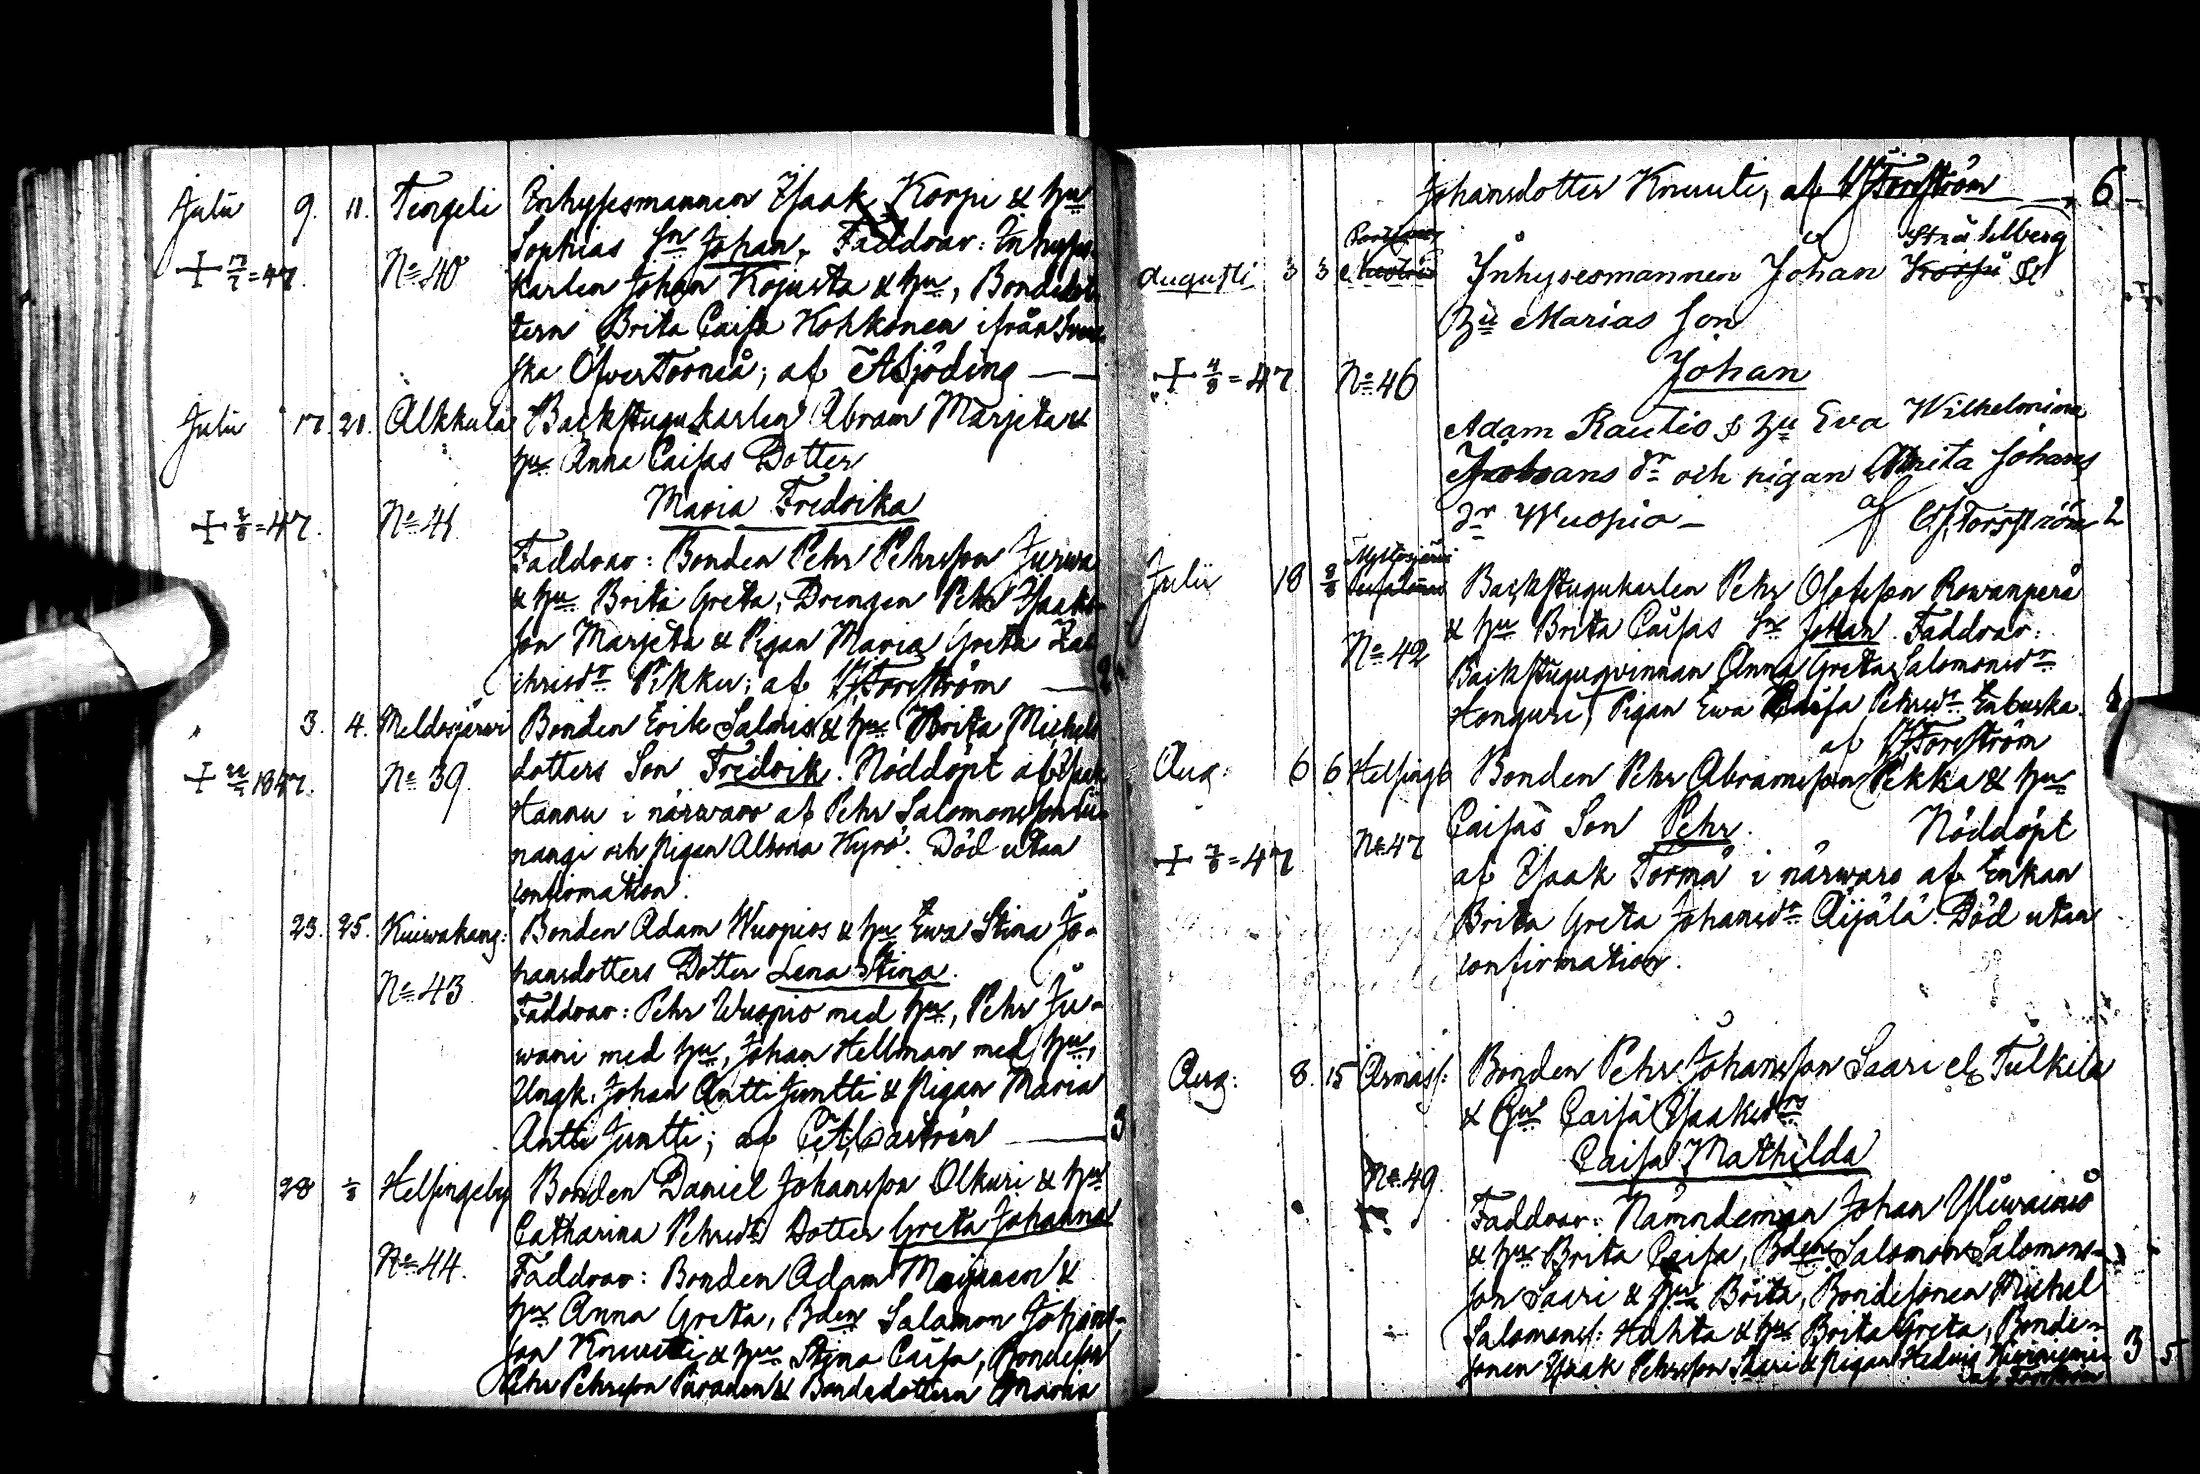 Julii 9. 11. Tengeli Inhysesmannen Isaak Korpi & hu
Sophias Sn Johan, Faddrar: Inhyses-
+ 17/7 = 47. No 40 karlen Johan Kojusta & hu, Bondedot
tern Brita Caisa Hohkonen ifrån Sven
ska ÖfverTorneå; af ASjöding —
Julii 17. 20. Alkkula Backstugukarlen Abram Marjeta &
hu Anna Caisas Dotter
Maria Fredrika
+ = 47. No 41
Faddrar: Bonden Pehr Pehrsson Jurwa
& hu Brita Greta, Drengen Pehr Isaaks-
son Marjeta & Pigan Maria Greta Za
chrisdr Pikku; af Forsström —
" 3. 4. Meldosjärwi Bonden Erik Salmis & hu Brita Michels
+ 1847. No 39. dotters Son Fredrik. Nöddöpt af Isak
Hannu i närwaro af Pehr Salomonsson
nangi och Pigan Albona Kyrö. Död utan
confirmation.
" 23. 25. Kuiwakang: Bonden Adam Wuopios & hu Ewa Stina Jo-
hansdotters Dotter Lena Stina.
No 43. Faddrar: Pehr Wuopio med hu, Pehr Ju-
wani med hu, Johan Hellman med hu,
Ungk. Johan Antti Juntti & Pigan Maria
Antti Juntti; af Castrén — 3
" 28 1/8 Helsingeby Bonden Daniel Johansson Olkuri & hu
Catharina Pehrsdrs Dotter Greta Johanna
No 44. Faddrar: Bonden Adam Maijanen &
hu Anna Greta, Bden Salamon Johans-
son Knuuti & hu Stina Caisa, Bondeson
Pehr Pehrsson Paranen & Bondedottern Maria
Johansdotter Knuuti, af Forsström —, 6
Stråhlberg
Augusti 3 3 Inhysesmannen Johan &
Hu Marias son
Johan
+ 4/8 = 47 No 46
Adam Rautio & hu Eva Wilhelmina
Jacobsans dr och pigan Brita Johans
dr Wuopio — af Forsström 2
Julii 18 Backstugukarlen Pehr Olofsson Rowanperä
& hu Brita Caisas Sn Johan. Faddrar:
No 42 Backstuguqvinnan Anna Greta Salomonsdr
Honguri, Pigan Ewa Caisa Pehrsdr Enbuska.
af Forsström
Aug: 6 6 Helsingb Bonden Pehr Abramsson Pekka & hu
No 47 Caisas Son Pehr. Nöddöpt
+ 7/8 = 47 af Isaak Tormä i närwaro af Enkan
Brita Greta Johansdr Äijälä. Död utan
confirmation.
Aug: 8. 15 Armass: Bonden Pehr Johansson Saari el Tulkila
& hu Caisa Isaksdrs
Caisa Mathilda
No 49.
Faddrar: Nämndeman Johan Yliwainio
& hu Brita Caisa, Bden Salomon Salomons-
son Saari & hu Brita, Bondesonen Michel
Salomons: Hahta & hu Brita Greta, Bonde-
sonen Isaak Pehrsson Saari & Pigan Hedvig 3 5